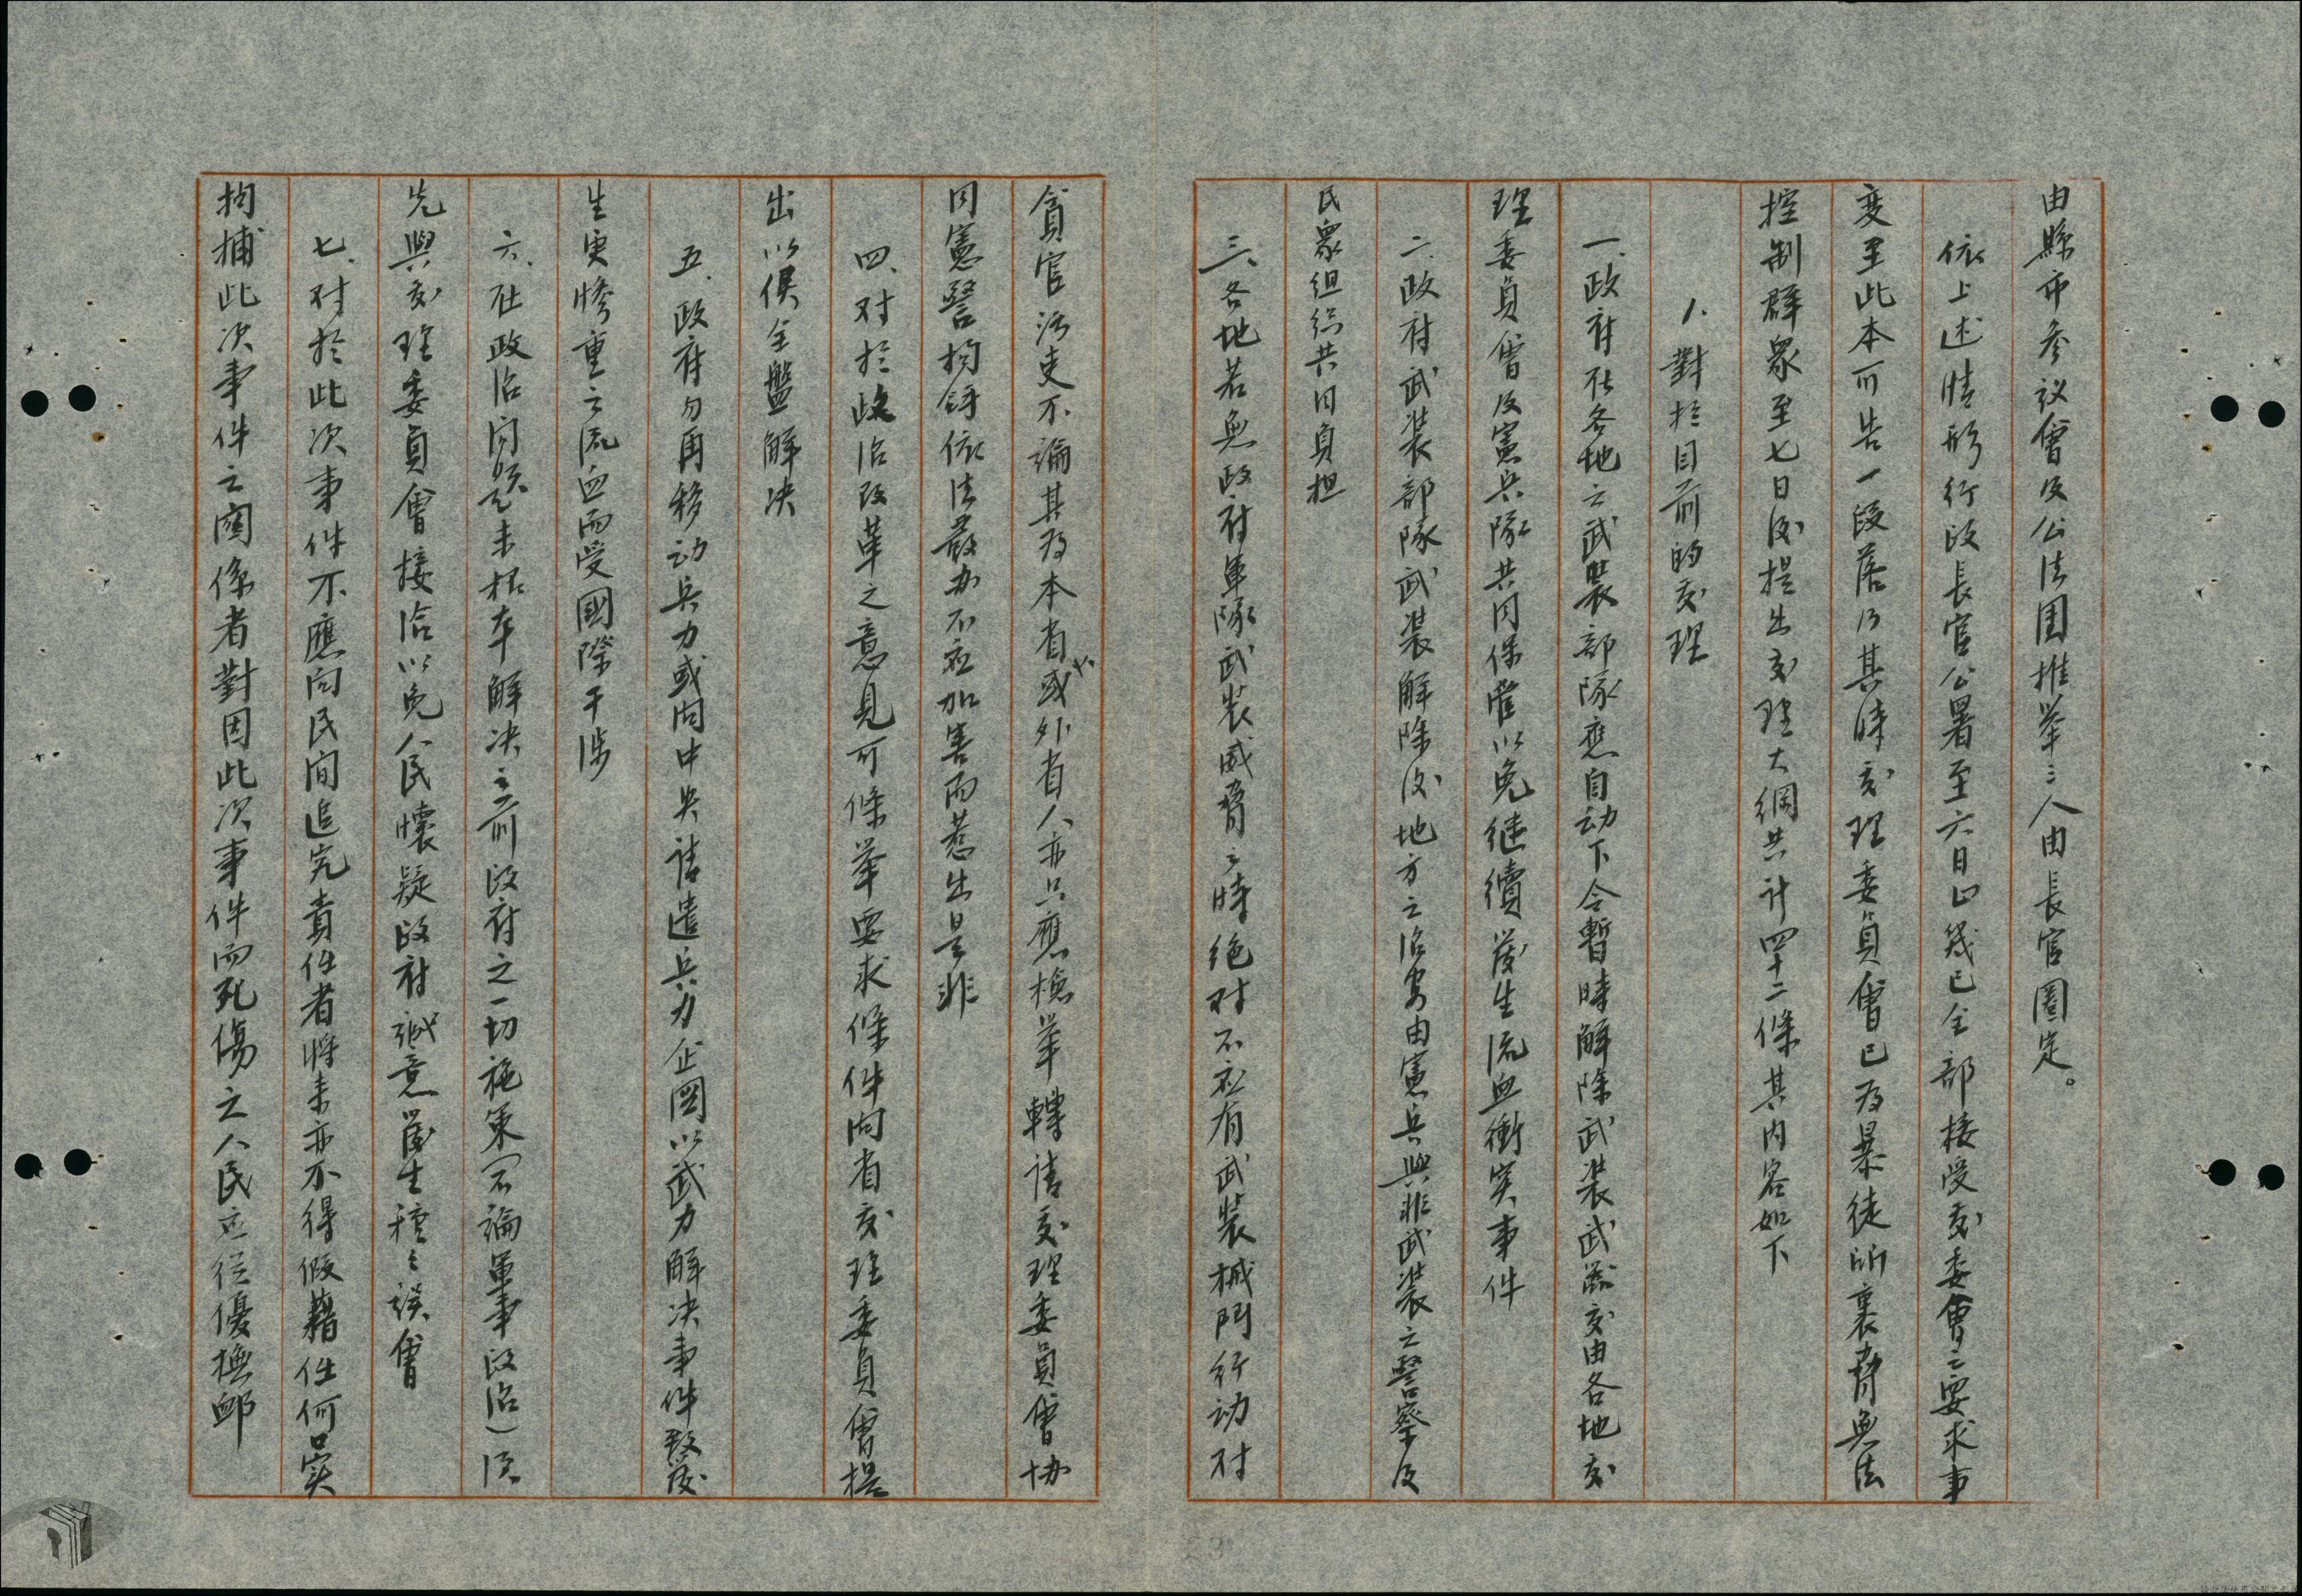 由縣市参议會及公法团推举三人由長官圈定。
依上述情形行政長官公署至六日止幾已全部接受处委會之要求事
变至此本可告一段落乃其時处理委員會已為暴徒所裹脅無法
控制群眾至七日後提出处理大綱共计四十二條其内容如下
1.對於目前的处理
一、政府在各地之武装部隊應自动下令暫時解除武装武器交由各地处
理委員會及憲兵隊共同保管以免继續發生流血衝突事件
二、政府武装部隊武装解除後地方之治安由憲兵與非武装之警察及
民眾组织共同負担
三、各地若無政府軍隊武装威脅之時绝对不应有武装械鬥行动对
貪官污吏不論其為本省或外省人亦只應檢举轉请处理委員會协
同憲警拘拿依法嚴办不应加害而惹出是非
四、对於政治改革之意見可條举要求條件向省处理委員會提
出以候全盤解决
五、政府勿再移动兵力或向中央请遣兵力企圖以武力解决事件致發
生更惨重之流血而受國際干涉
六、在政治问题未根本解决之前政府之一切施策(不論軍事政治)须
先與处理委員會接洽以免人民懷疑政府誠意發生種之誤會
七、对於此次事件不應向民间追究責任者將来亦不得假藉任何口实
拘捕此次事件之関係者對因此次事件而死傷之人民应從優撫卹